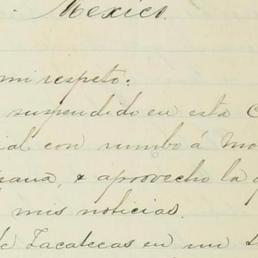 Mexico.
mi respeto:
suspendido en esta C
ial con rumbo á Mo
ana, & aprovecho la
mis noticias.
de Zacatecas en un